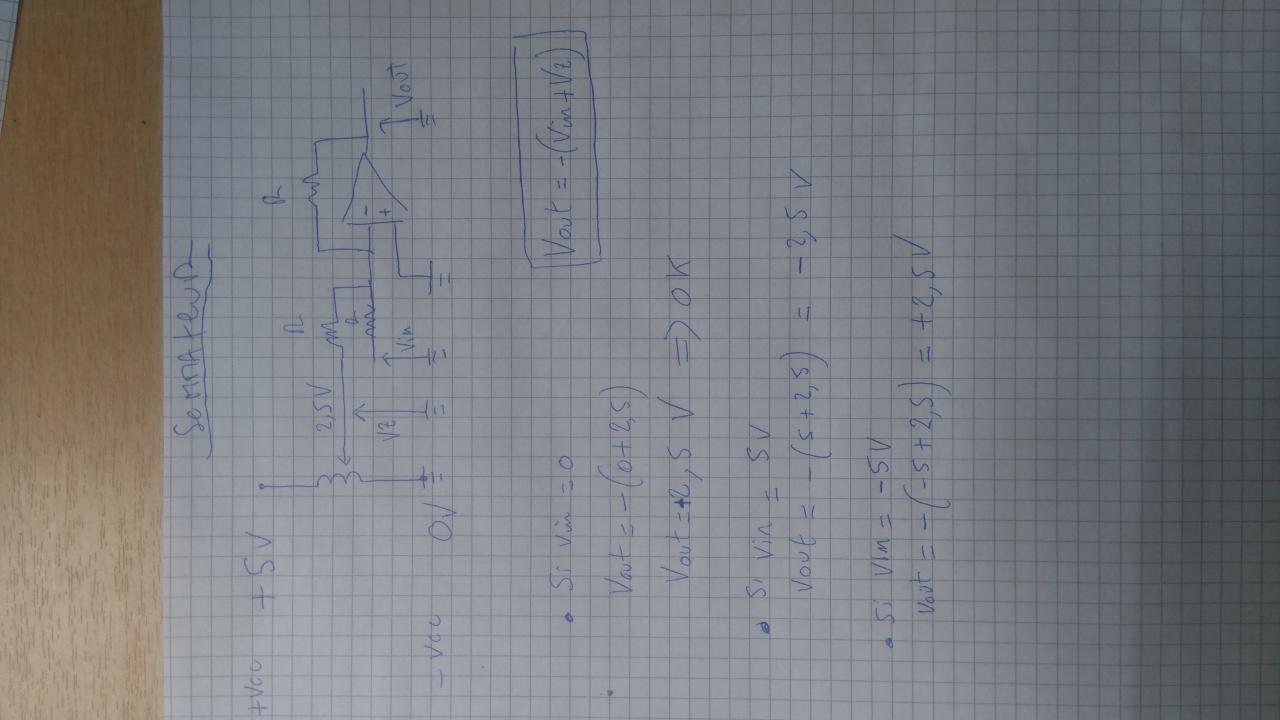 SOMMATEUR
+Vcc +5V
2,5V
R
R
R
-
+
Vz
Vin
Vout
-Vcc 0V
Vout = -(Vin+Vz)
• Si Vin = 0
Vout = -(0+2,5)
Vout = +2,5 V => OK
• Si Vin = 5V
Vout = -(5+2,5) = -2,5 V
• Si Vin = -5V
Vout = -(-5+2,5) = +2,5V